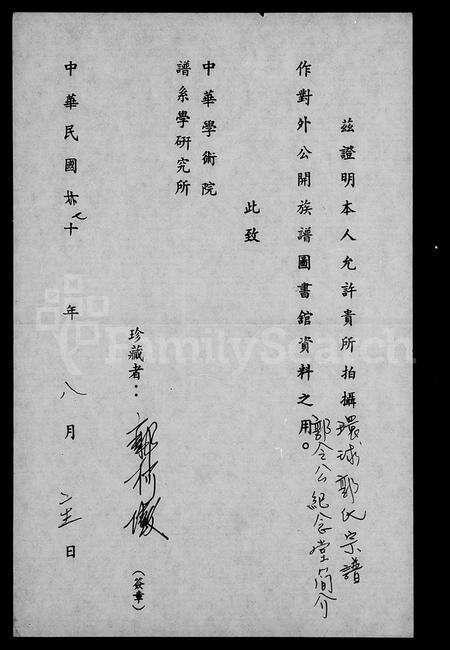 茲證明本人允許貴所拍攝環球郭氏宗譜
郭令公紀念堂簡介
作對外公開族譜圖書館資料之用。
此致
中華學術院
譜系學研究所
珍藏者：郭
（簽章）
中華民國七十年八月日
FamilySearch